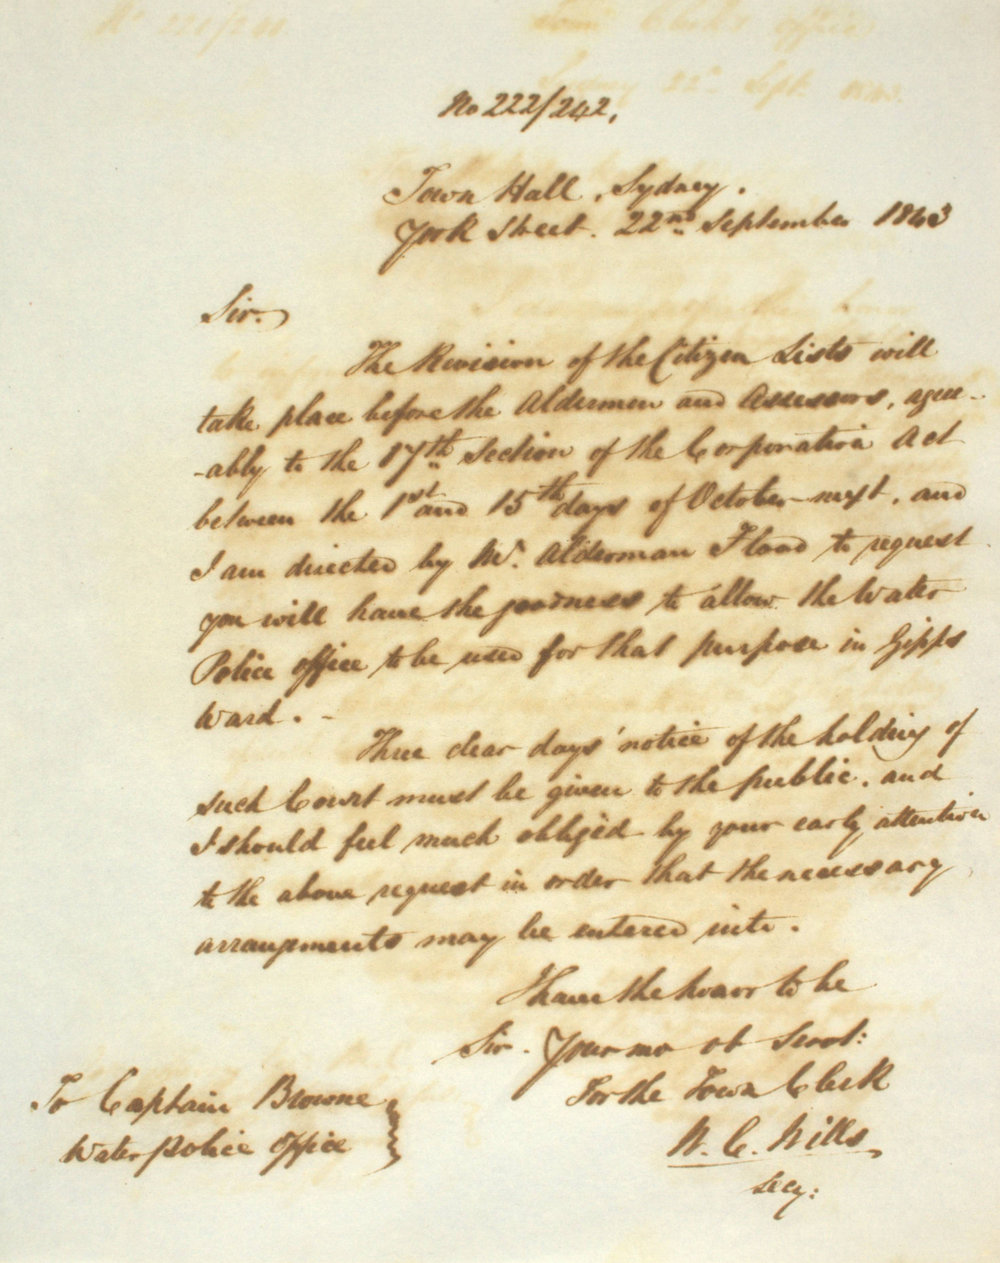 No 222/242,
Town Hall, Sydney.
York Street. 22nd September 1843
Sir.
The Revision of the Citizen Lists will
take place before the Aldermen and Assessors, agree-
-ably to the 17th Section of the Corporation Act
between the 1st and 15th days of October next, and
I am directed by Mr. Alderman Flood to request
you will have the goodness to allow the Water
Police office to be used for that purpose in Gipps
Ward. -
Three clear days' notice of the holding of
such Court must be given to the public, and
I should feel much obliged by your early attention
to the above request in order that the necessary
arrangements may be entered into.
I have the honor to be
Sir. Your mo ob Servt:
For the Town Clerk
W. C. Wills
Secy:
To Captain Browne
Water Police Office